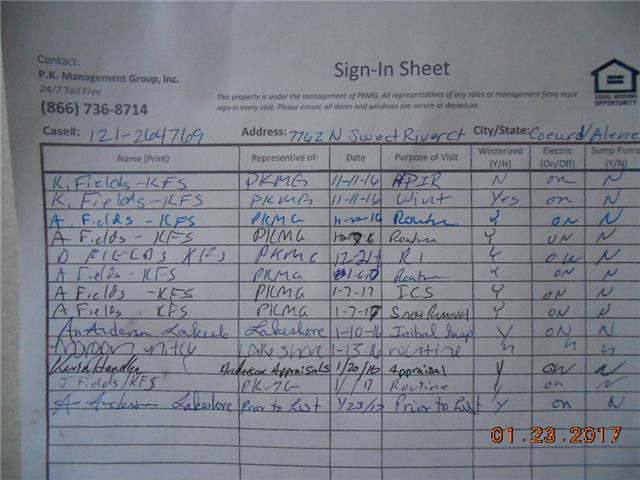 Contact:
P.K. Management Group, Inc.
24/7 Toll Free
(866) 736-8714
Sign-In Sheet
This property is under the management of PKMG. All representatives of any sales or management firms must
sign-in every visit. Please ensure all doors and windows are secure at departure.
EQUAL HOUSING
OPPORTUNITY
Case#: 121-264769 Address: 7762 N Sweet River Ct City/State: Coeur d'Alene
Name (Print) Representive of: Date Purpose of Visit Winterized (Y/N) Electric (On/Off) Sump Pump (Y/N)
K. Fields - KFS PKMG 11-11-16 APIR N on N
K. Fields - KFS PKMG 11-11-16 Wint Yes on N
A. Fields - KFS PKMG Routine Y ON N
A Fields - KFS PKMG Routine Y ON N
D FIELDS KFS PKMG RI Y ON N
A Fields - KFS PKMG Routine Y ON N
A Fields - KFS PKMG 1-7-17 ICS Y ON N
A Fields - KFS PKMG 1-7-17 Snow Removal Y ON N
An Anderson Lakesh Lakeshore 1-10-16 Initial Insp Y ON N
Lakeshore 1-13-16 routine
Anderson Appraisals 1/20/16 Appraisal Y ON N
J Fields/KFS PKMG Routine Y on N
A Anderson Lakeshore Prior to List 1/23/17 Prior to List Y on N
01.23.2017